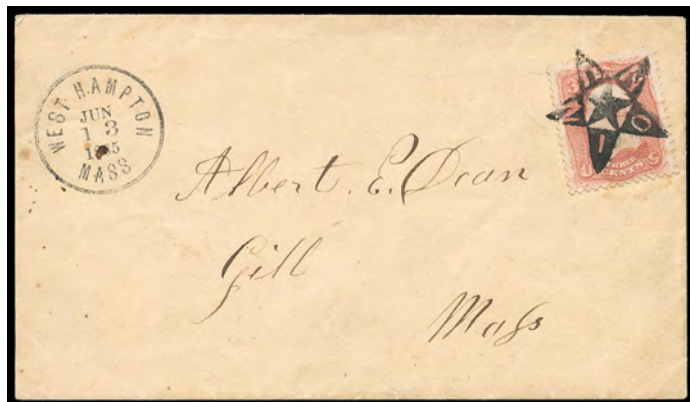 WEST HAMPTON
JUN
1 3
MASS
UNION
CENTS
Albert. E. Dean
Gill
Mass